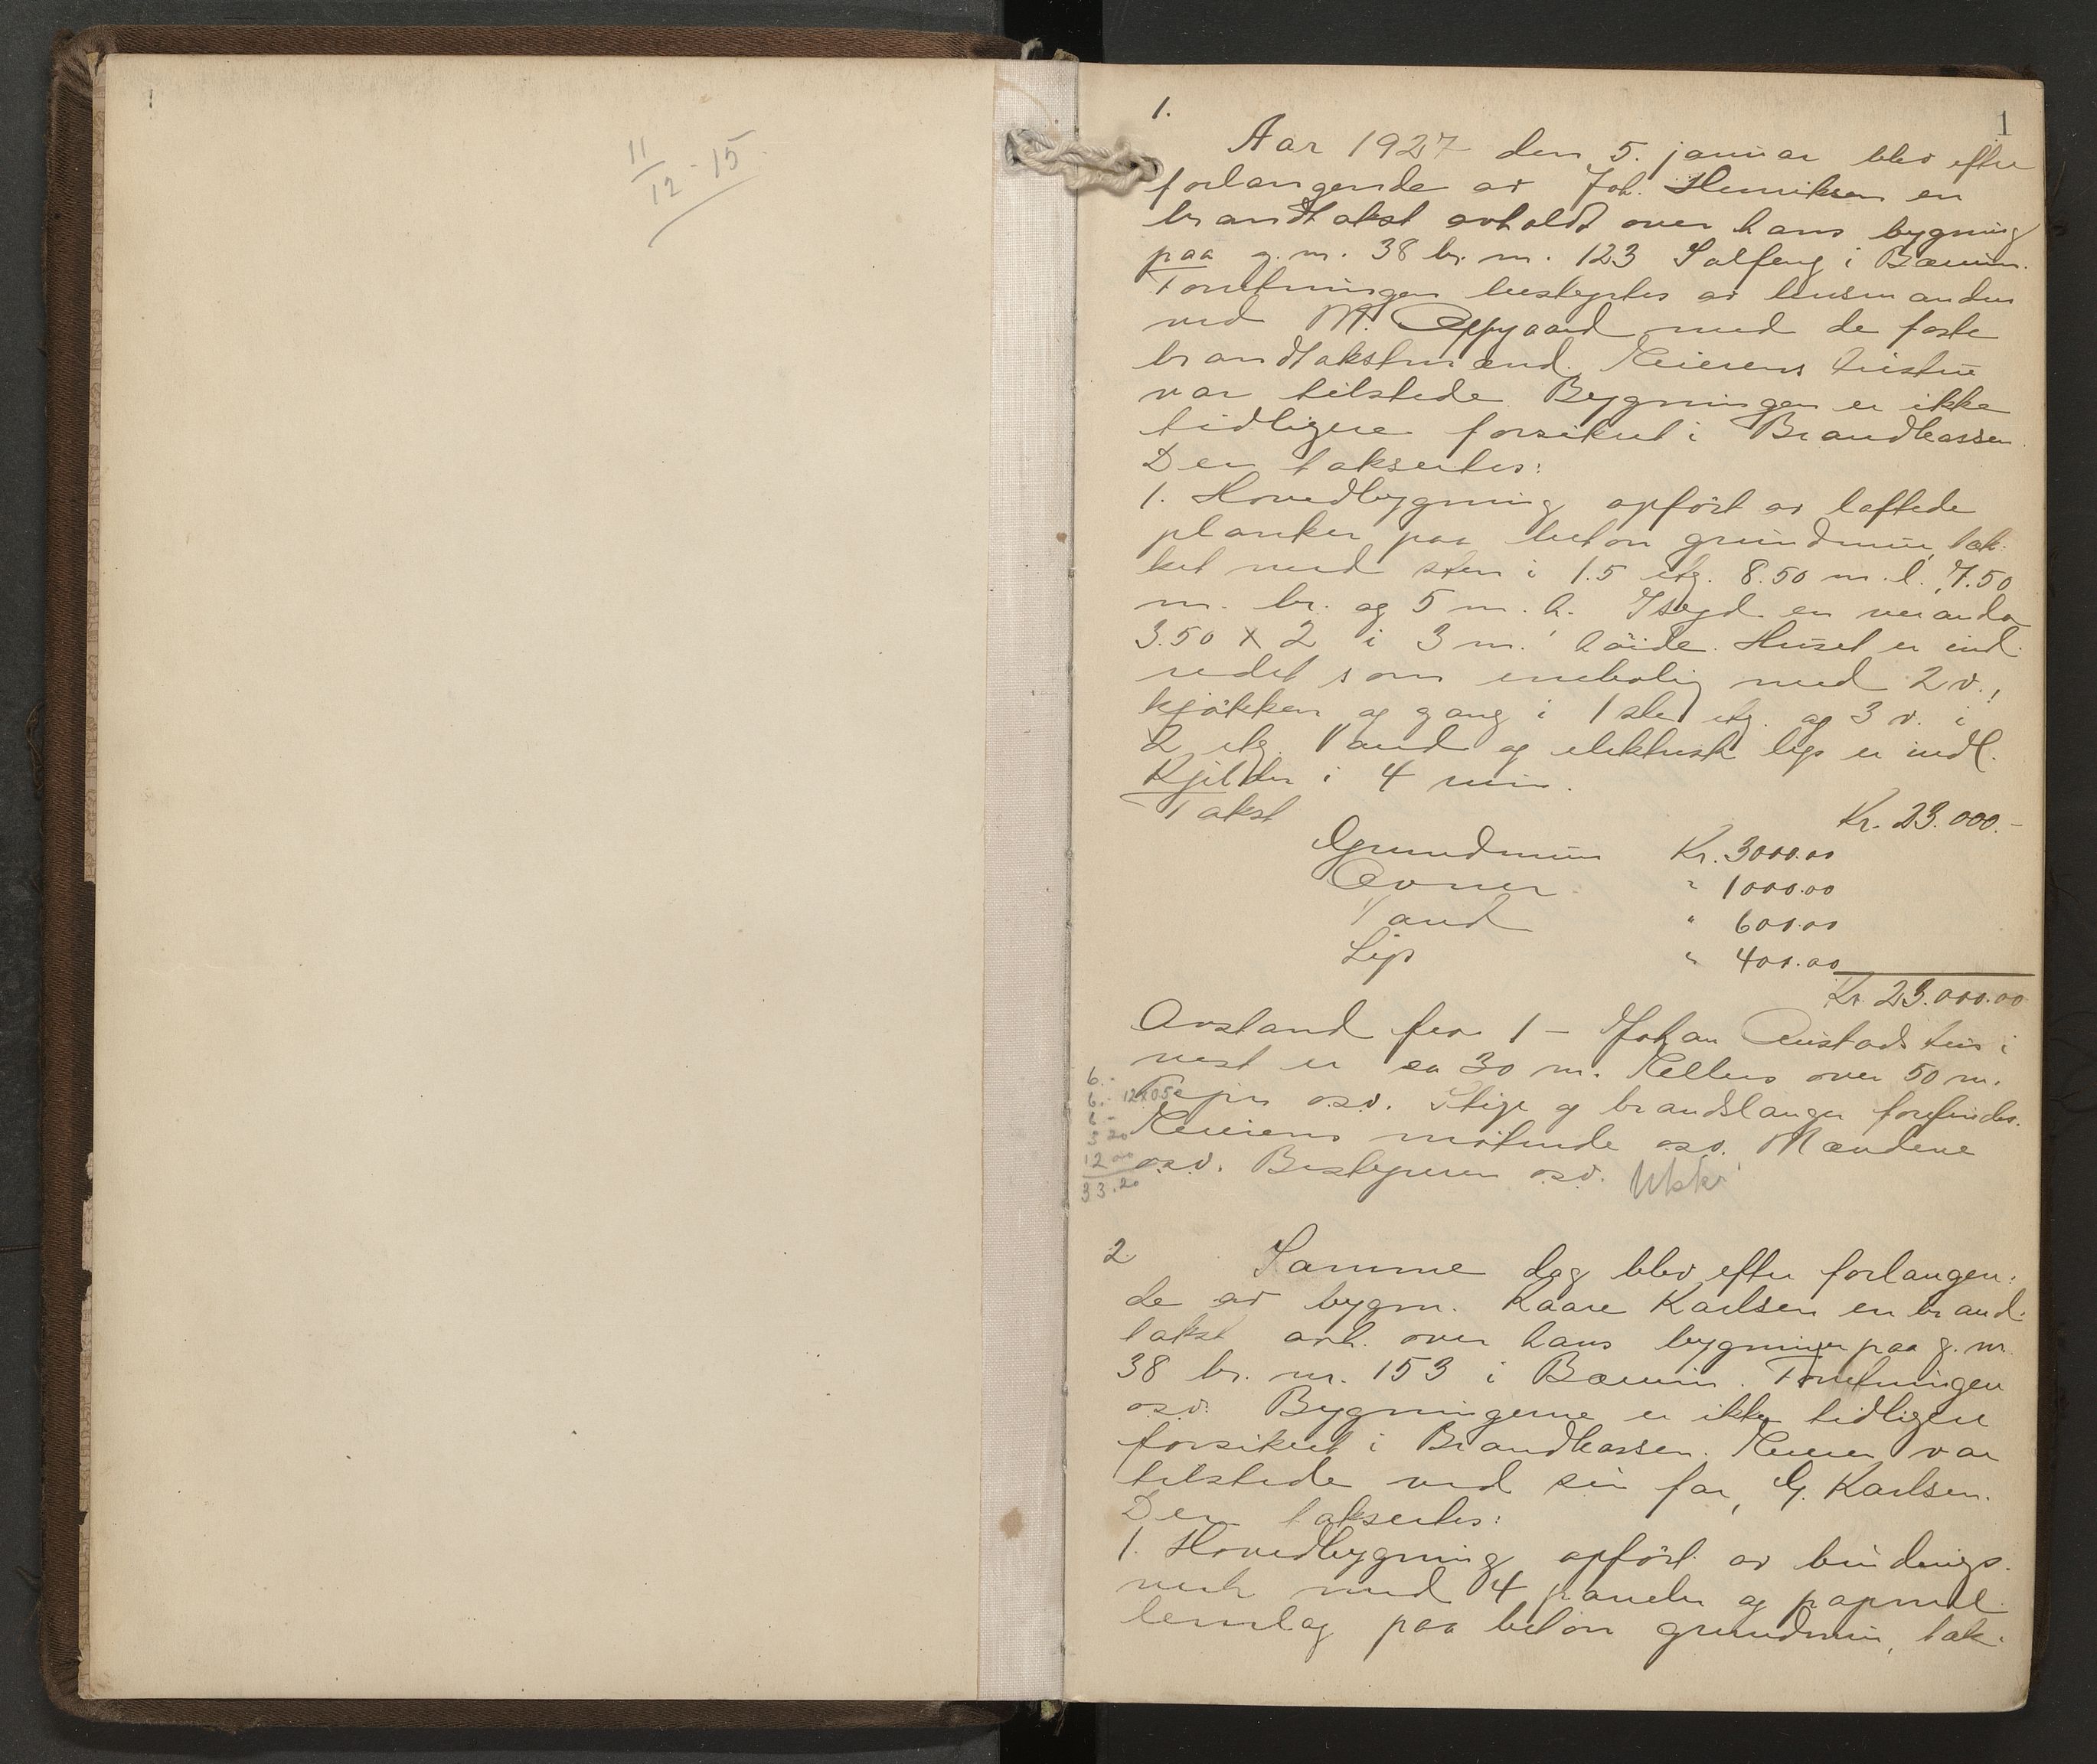 11/12 - 15
1.
1
Aar 1927 den 5. januar blev efter
forlangende av Joh. Henriksen en
brandtakst avholdt over hans bygning
paa g. nr. 38 br. nr. 123 Solfeng i Bærum.
Forretningen bestyrtes av lensmanden
ved M. Oppgaard med de faste
brandtakstmænd. Eierens hustru
var tilstede. Bygningen er ikke
tidligere forsikret i Brandkassen.
Der taksertes:
1. Hovedbygning opført av laftede
planker paa beton grundmur, tæk-
ket med sten i 1.5 etg. 8.50 m. l. 7.50
m. br. og 5 m. h. Tilbygd en veranda
3.50 x 2 i 3 m. høide. Huset er ind-
redet som enebolig med 2 v.,
kjøkken og gang i 1ste etg. og 3 v. i
2 etg. Vand og elektrisk lys er indl.
Kjelder i 4 rum.
Takst Kr. 23.000.-
Grundmur Kr. 3000.00
Ovner " 1000.00
Vand " 600.00
Lys " 400.00
Kr. 23.000.00
Avstand fra 1 - Johan hus i
vest er ca 30 m. Ellers over 50 m.
6.-
6.- 12x0.50
6 -
3 20
12 00
33.20
Feier o.s.v. Stige og brandslanger forefindes.
Eierens møtende o.s.v. Mændene
o.s.v. Bestyreren o.s.v.
2. Samme dag blev efter forlangen-
de av bygm. Kaare Karlsen en brand-
takst avh. over hans bygninger paa g. nr.
38 br. nr. 153 i Bærum. Forretningen
o.s.v. Bygningerne er ikke tidligere
forsikret i Brandkassen. Eieren var
tilstede ved sin far, G. Karlsen.
Der taksertes:
1. Hovedbygning opført av bindings-
verk med 4 paneler og papmel-
lemlag paa beton grundmur, tæk-